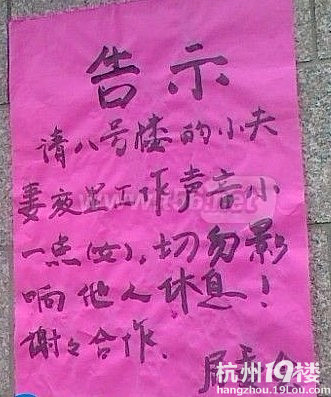 告示
请八号楼的小夫
妻夜里工作声音小
一点(女),切勿影
响他人休息!
谢々合作.
居委
杭州19楼
hangzhou.19lou.com